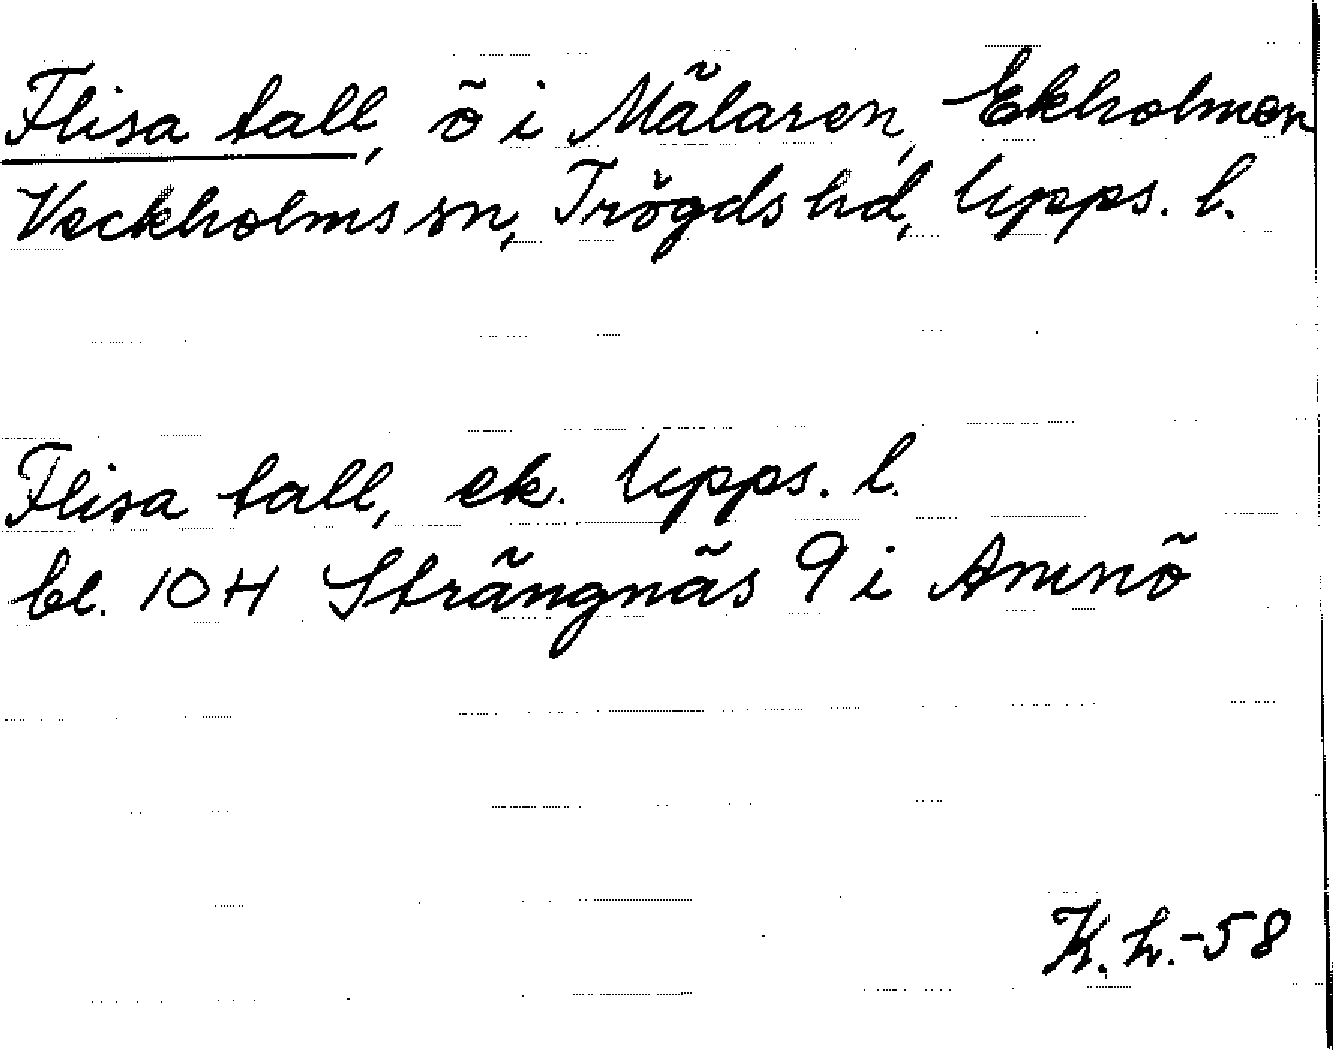 Flisa tall, ö i Mälaren, Ekholmen
Veckholms sn, Trögds hd, Upps. l.
Flisa tall, ek. Upps. l.
bl. 10 H Strängnäs 9 i Amnö
K. L. -58